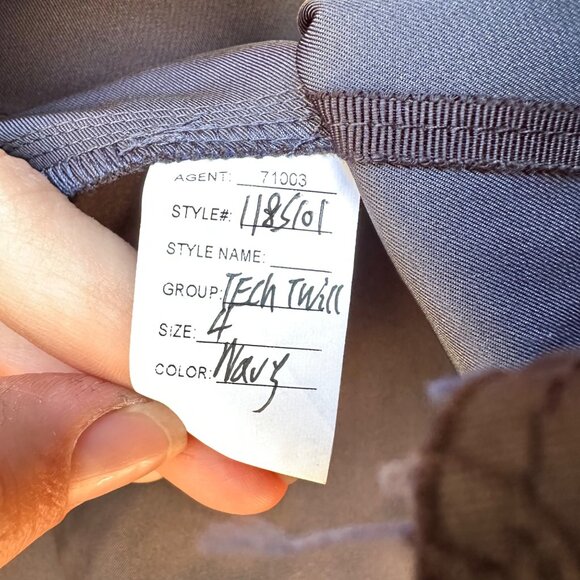 AGENT: 71003
STYLE#: 1185101
STYLE NAME:
GROUP: TECH TWILL
SIZE: 4
COLOR: Navy